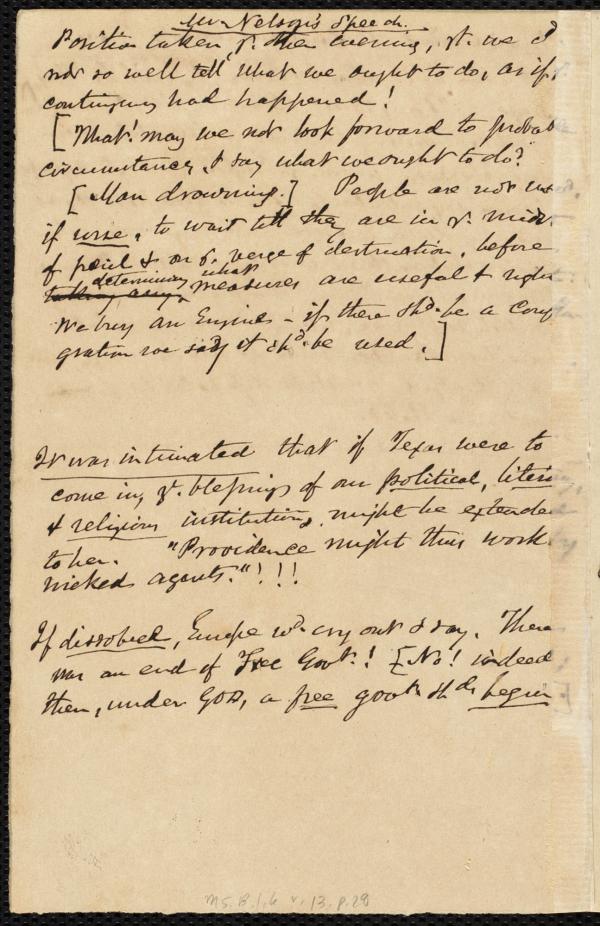 Mr. Nelson's Speech.
Position taken, ye. other evening, yt. we cd
not so well tell what we ought to do, as if
contingency had happened!
[What! may we not look forward to probab
circumstances, & say what we ought to do?"
[Man drowning.] People are not
if wise, to wait till they are in ye. midst
of peril & on ye. verge of destruction, before
determining what
taking any measures are useful & right
We buy an Engine - if there shd. be a conf
gration we say it shd. be used.]
It was intimated that if Texas were to
come in, ye. blessings of our political, litera
& religious institutions, might be extended
to her. "Providence might thus work
wicked agents."!!!
If dissolved, Europe wd. cry out & say, There
was an end of Free Govt.! [No! indeed
then, under God, a free govt. shd. begin
MS. B.1.6 v. 13. p. 28